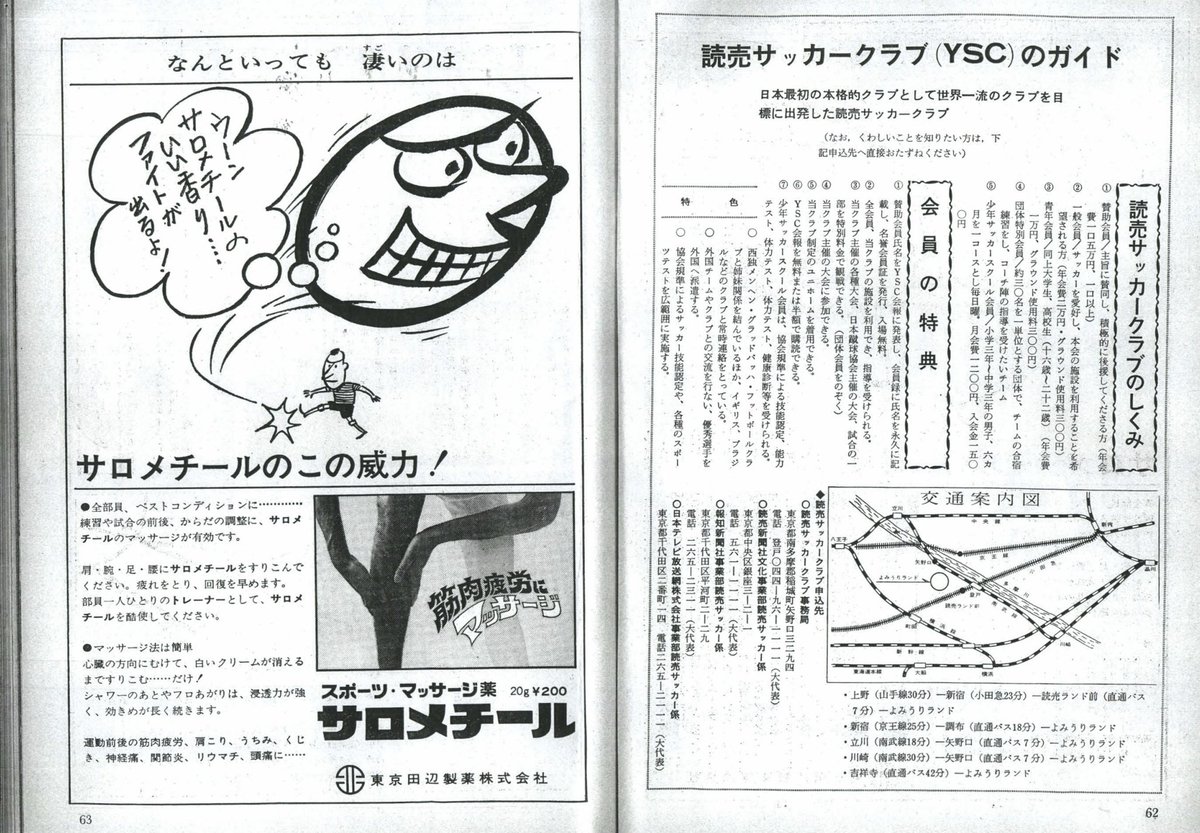 読売サッカークラブ(YSC)のガイド
日本最初の本格的クラブとして世界一流のクラブを目
標に出発した読売サッカークラブ
(なお，くわしいことを知りたい方は，下
記申込先へ直接おたずねください)
読売サッカークラブのしくみ
① 賛助会員／主旨に賛同し、積極的に後援してくださる方（年会
費一口五万円、一口以上）
② 一般会員／サッカーを愛好し、本会の施設を利用することを希
望される方（年会費二万円・グラウンド使用料三〇〇円）
③ 青年会員／同上大学生、高校生（十六歳～二十二歳）（年会費
一万円、グラウンド使用料三〇〇円）
④ 団体特別会員／約三〇名を一単位とする団体で、チームの合宿
練習をし、コーチ陣の指導を受けたいチーム
⑤ 少年サッカースクール会員／小学三年～中学三年の男子、六カ
月を一コースとし毎日曜。月会費一二〇〇円、入会金一五〇
〇円
会員の特典
① 賛助会員氏名をYSC会報に発表し、会員録に氏名を永久に記
載し、名誉会員証を発行、入場無料。
② 全会員、当クラブの施設を利用でき、指導を受けられる。
③ 当クラブ主催の各種大会、日本蹴球協会主催の大会、試合の一
部を特別料金で観戦できる。
④ 当クラブ主催の大会に参加できる。
⑤ 当クラブ制定のユニホームを着用できる。（団体会員をのぞく）
⑥ YSC会報を無料または半額で購読できる。
⑦ 少年サッカースクール会員は、協会規準による技能認定、能力
テスト、体力テスト、健康診断等を受けられる。
特色
○ 西独メンヘン・グラッドバッハ・フットボールクラ
ブと姉妹関係を結んでいるほか、イギリス、ブラジ
ルなどのクラブと常時連絡をとっている。
○ 外国チームやクラブとの交流を行ない、優秀選手を
外国へ派遣する。
○ 協会規準によるサッカー技能認定や、各種のスポー
ツテストを広範囲に実施する。
◆読売サッカークラブ申込先
○読売サッカークラブ事務局
東京都南多摩郡稲城町矢野口三二九四
電話 登戸〇四四-九六-一一一一（大代表）
○読売新聞社文化事業部読売サッカー係
東京都中央区銀座三-二-一
電話 五六一-一一一一（大代表）
○報知新聞社事業部読売サッカー係
東京都千代田区平河町二-二九
電話 二六五-二三一一（大代表）
○日本テレビ放送網株式会社事業部読売サッカー係
東京都千代田区二番町一四 電話二六五-二一一一（大代表）
交通案内図
立川
中央線
新宿
八王子
京王線
小田急
矢野口
品川
よみうりランド
登戸
読売ランド前
南武線
町田
横浜線
川崎
新幹線
東海道本線
大船
横浜
・上野（山手線30分）―新宿（小田急23分）―読売ランド前（直通バス
7分）―よみうりランド
・新宿（京王線25分）―調布（直通バス18分）―よみうりランド
・立川（南武線18分）―矢野口（直通バス7分）―よみうりランド
・川崎（南武線30分）―矢野口（直通バス7分）―よみうりランド
・吉祥寺（直通バス42分）―よみうりランド
62
なんといっても 凄いのは
すご
ウーン
サロメチールの
いい香り…
ファイトが
出るよ!
サロメチールのこの威力!
●全部員、ベストコンディションに…………
練習や試合の前後、からだの調整に、サロメ
チールのマッサージが有効です。
肩・腕・足・腰にサロメチールをすりこんで
ください。疲れをとり、回復を早めます。
部員一人ひとりのトレーナーとして、サロメ
チールを酷使してください。
●マッサージ法は簡単
心臓の方向にむけて、白いクリームが消える
まですりこむ……だけ!
シャワーのあとやフロあがりは、浸透力が強
く、効きめが長く続きます。
運動前後の筋肉疲労、肩こり、うちみ、くじ
き、神経痛、関節炎、リウマチ、頭痛に……
筋肉疲労に
マッサージ
スポーツ・マッサージ薬 20g￥200
サロメチール
東京田辺製薬株式会社
63